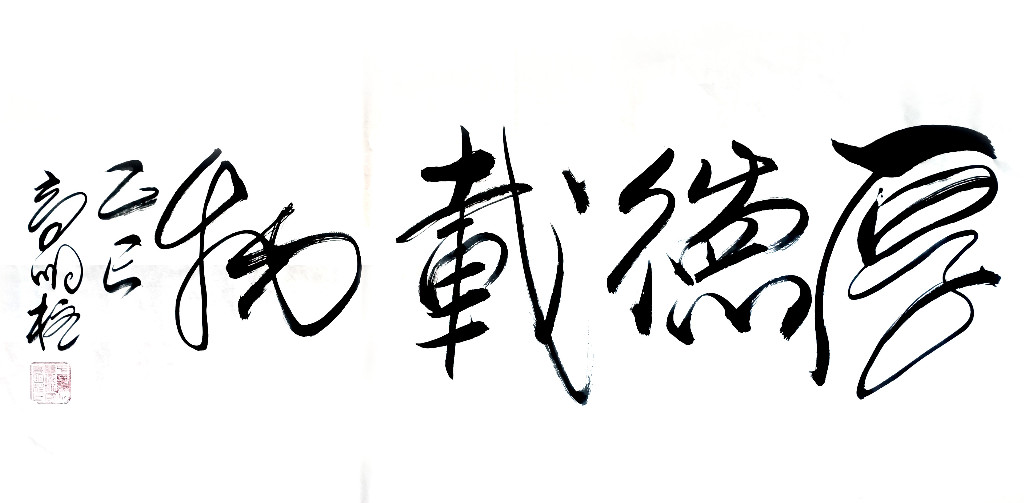 厚德載物
乙巳
高明柱